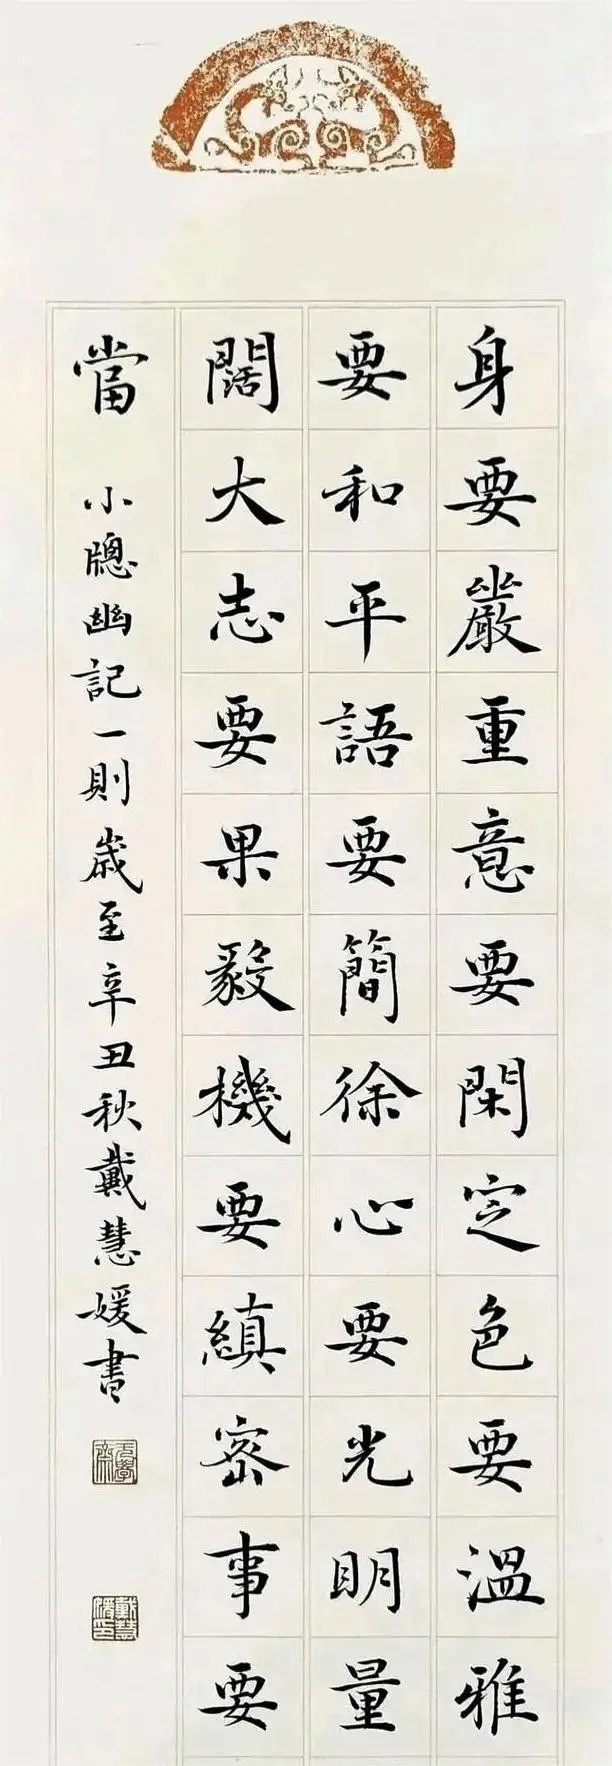 身要嚴重意要閑定色要溫雅
要和平語要簡徐心要光明量
闊大志要果毅機要縝密事要
當
小牕幽記一則歲至辛丑秋戴慧媛書
戴慧媛印